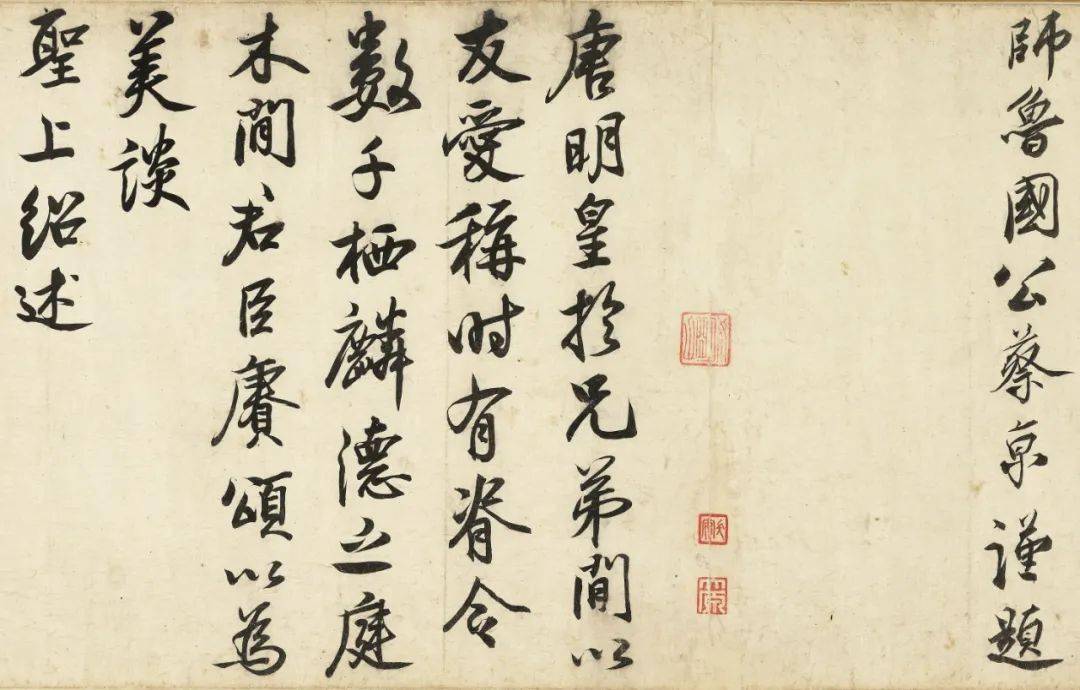 師魯國公蔡京謹題
唐明皇於兄弟間以
友愛稱时有脊令
數千栖麟德之庭
木間君臣賡頌以為
美談
聖上紹述